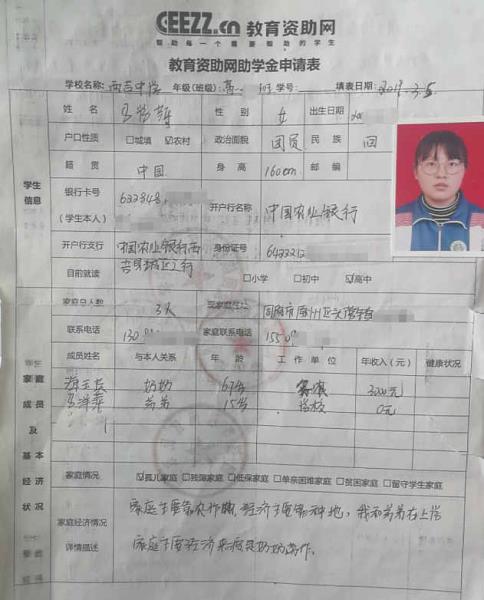 GEEZZ.cn 教育资助网
帮助每一个需要帮助的学生
教育资助网助学金申请表
学校名称: 西吉中学 年级(班级): 高 班 学号: 填表日期: 2019.3.5
姓名 性别 女 出生日期
户口性质 □城填 ☑农村 政治面貌 团员 民族 回
籍贯 中国 身高 160cm 邮编
学生信息
银行卡号 (学生本人) 622848 开户行名称 中国农业银行
开户行支行 中国农业银行西吉县城区支行 身份证号 6422212
目前就读 □小学 □初中 ☑高中
家庭总人数 3人 现家庭住址 固原市原州区
联系电话 130 家庭联系电话 155
成员姓名 与本人关系 年龄 工作单位 年收入(元) 健康状况
奶奶 67岁 务农 3000元
弟弟 15岁 学校 0元
家庭成员及基本经济状况
家庭情况 ☑孤儿家庭 □独猕家庭 □低保家庭 □单亲困难家庭 □贫困家庭 □留守学生家庭
家庭经济情况详情描述
家庭主要靠农作物,经济主要靠种地,我和弟弟在上学
家庭主要经济来源是奶奶劳作.